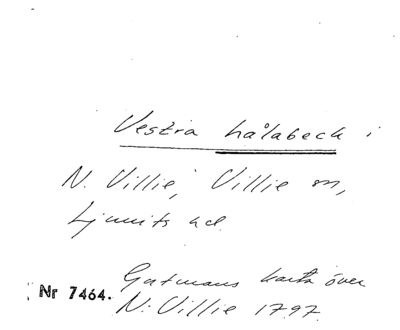 Vestra hålabeck i
N. Villie, Villie sn,
Ljunits hd.
Gatmans karta över
Nr 7464. N. Villie 1797.